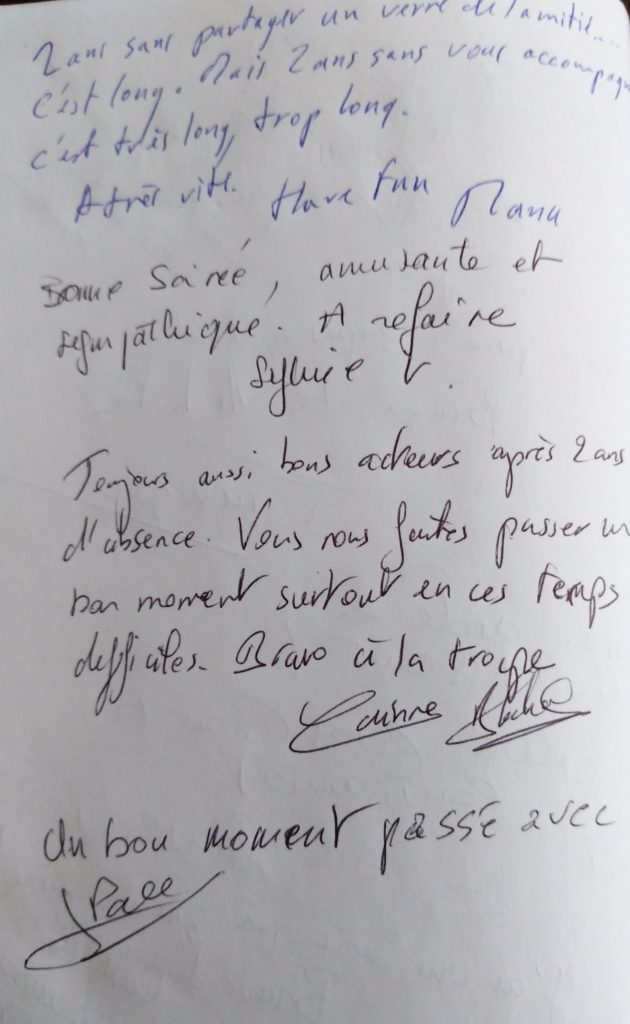 2 ans sans partager un verre de l'amitié....
C'est long. Mais 2 ans sans vous accompagn
c'est très long, trop long.
A très vite. Have Fun Manu
Bonne Soireé, amusante et
sympathique. A refaire
Sylvie V.
Toujours aussi bons acteurs après 2 ans
d'absence. Vous nous faites passer un
bon moment surtout en ces temps
difficiles. Bravo à la troupe
Corinne
Un bon moment passé avec